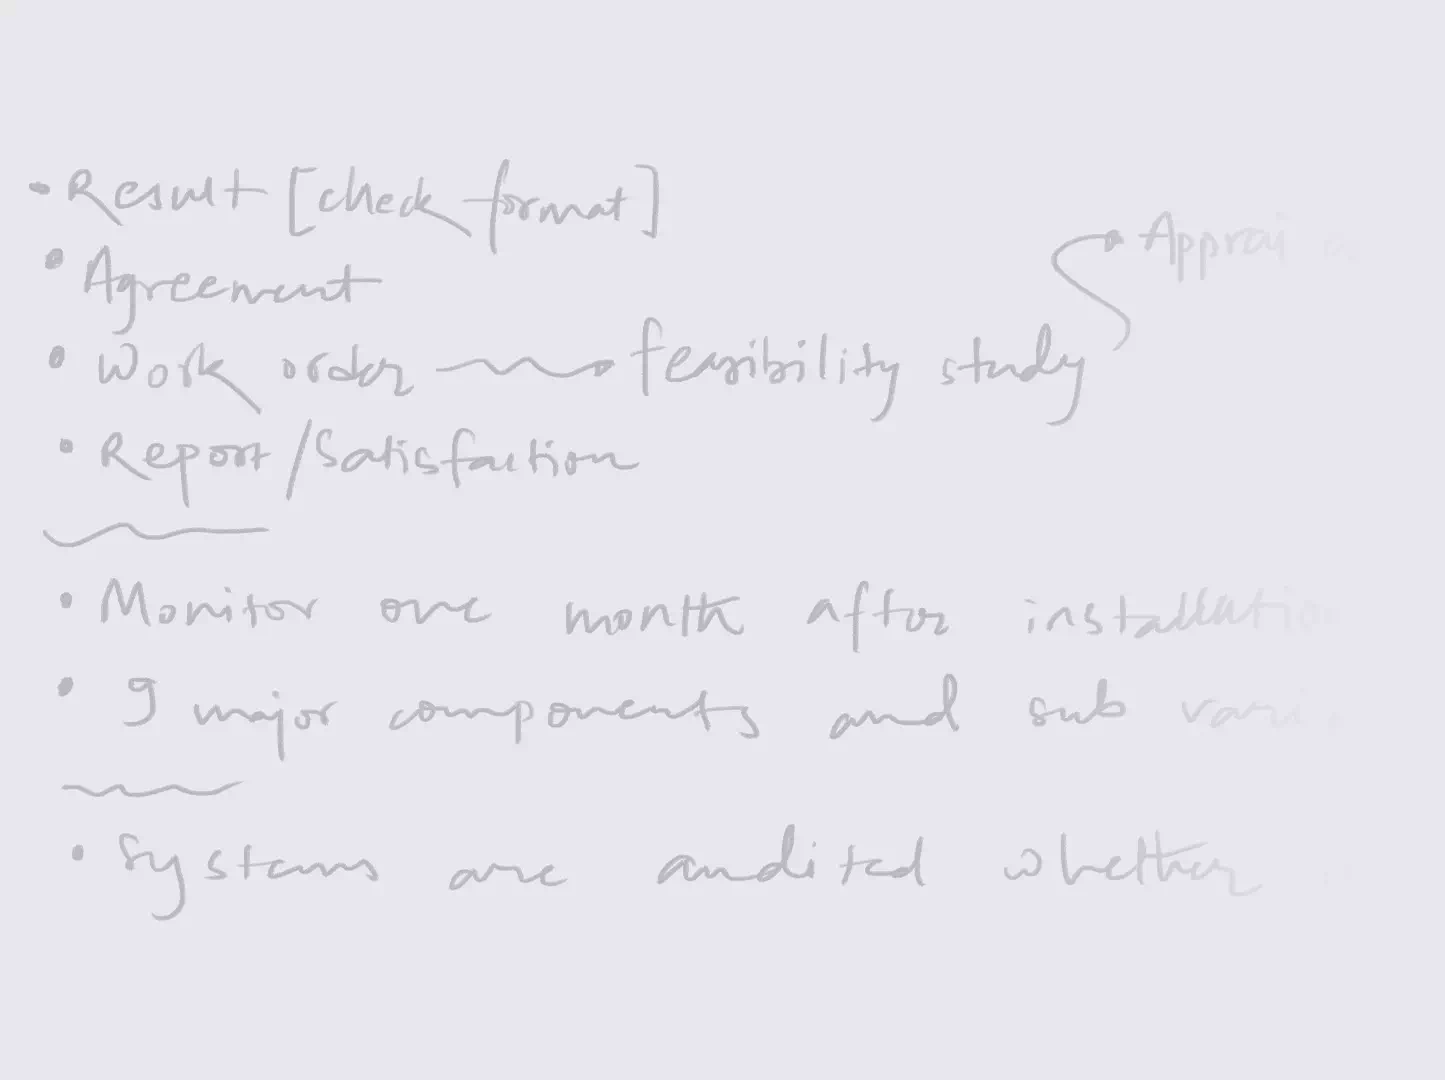 • Result [check format]
• Agreement
• Work order → feasibility study
• Report/Satisfaction
• Monitor one month after installation
• 9 major components and sub
• Systems are audited whether